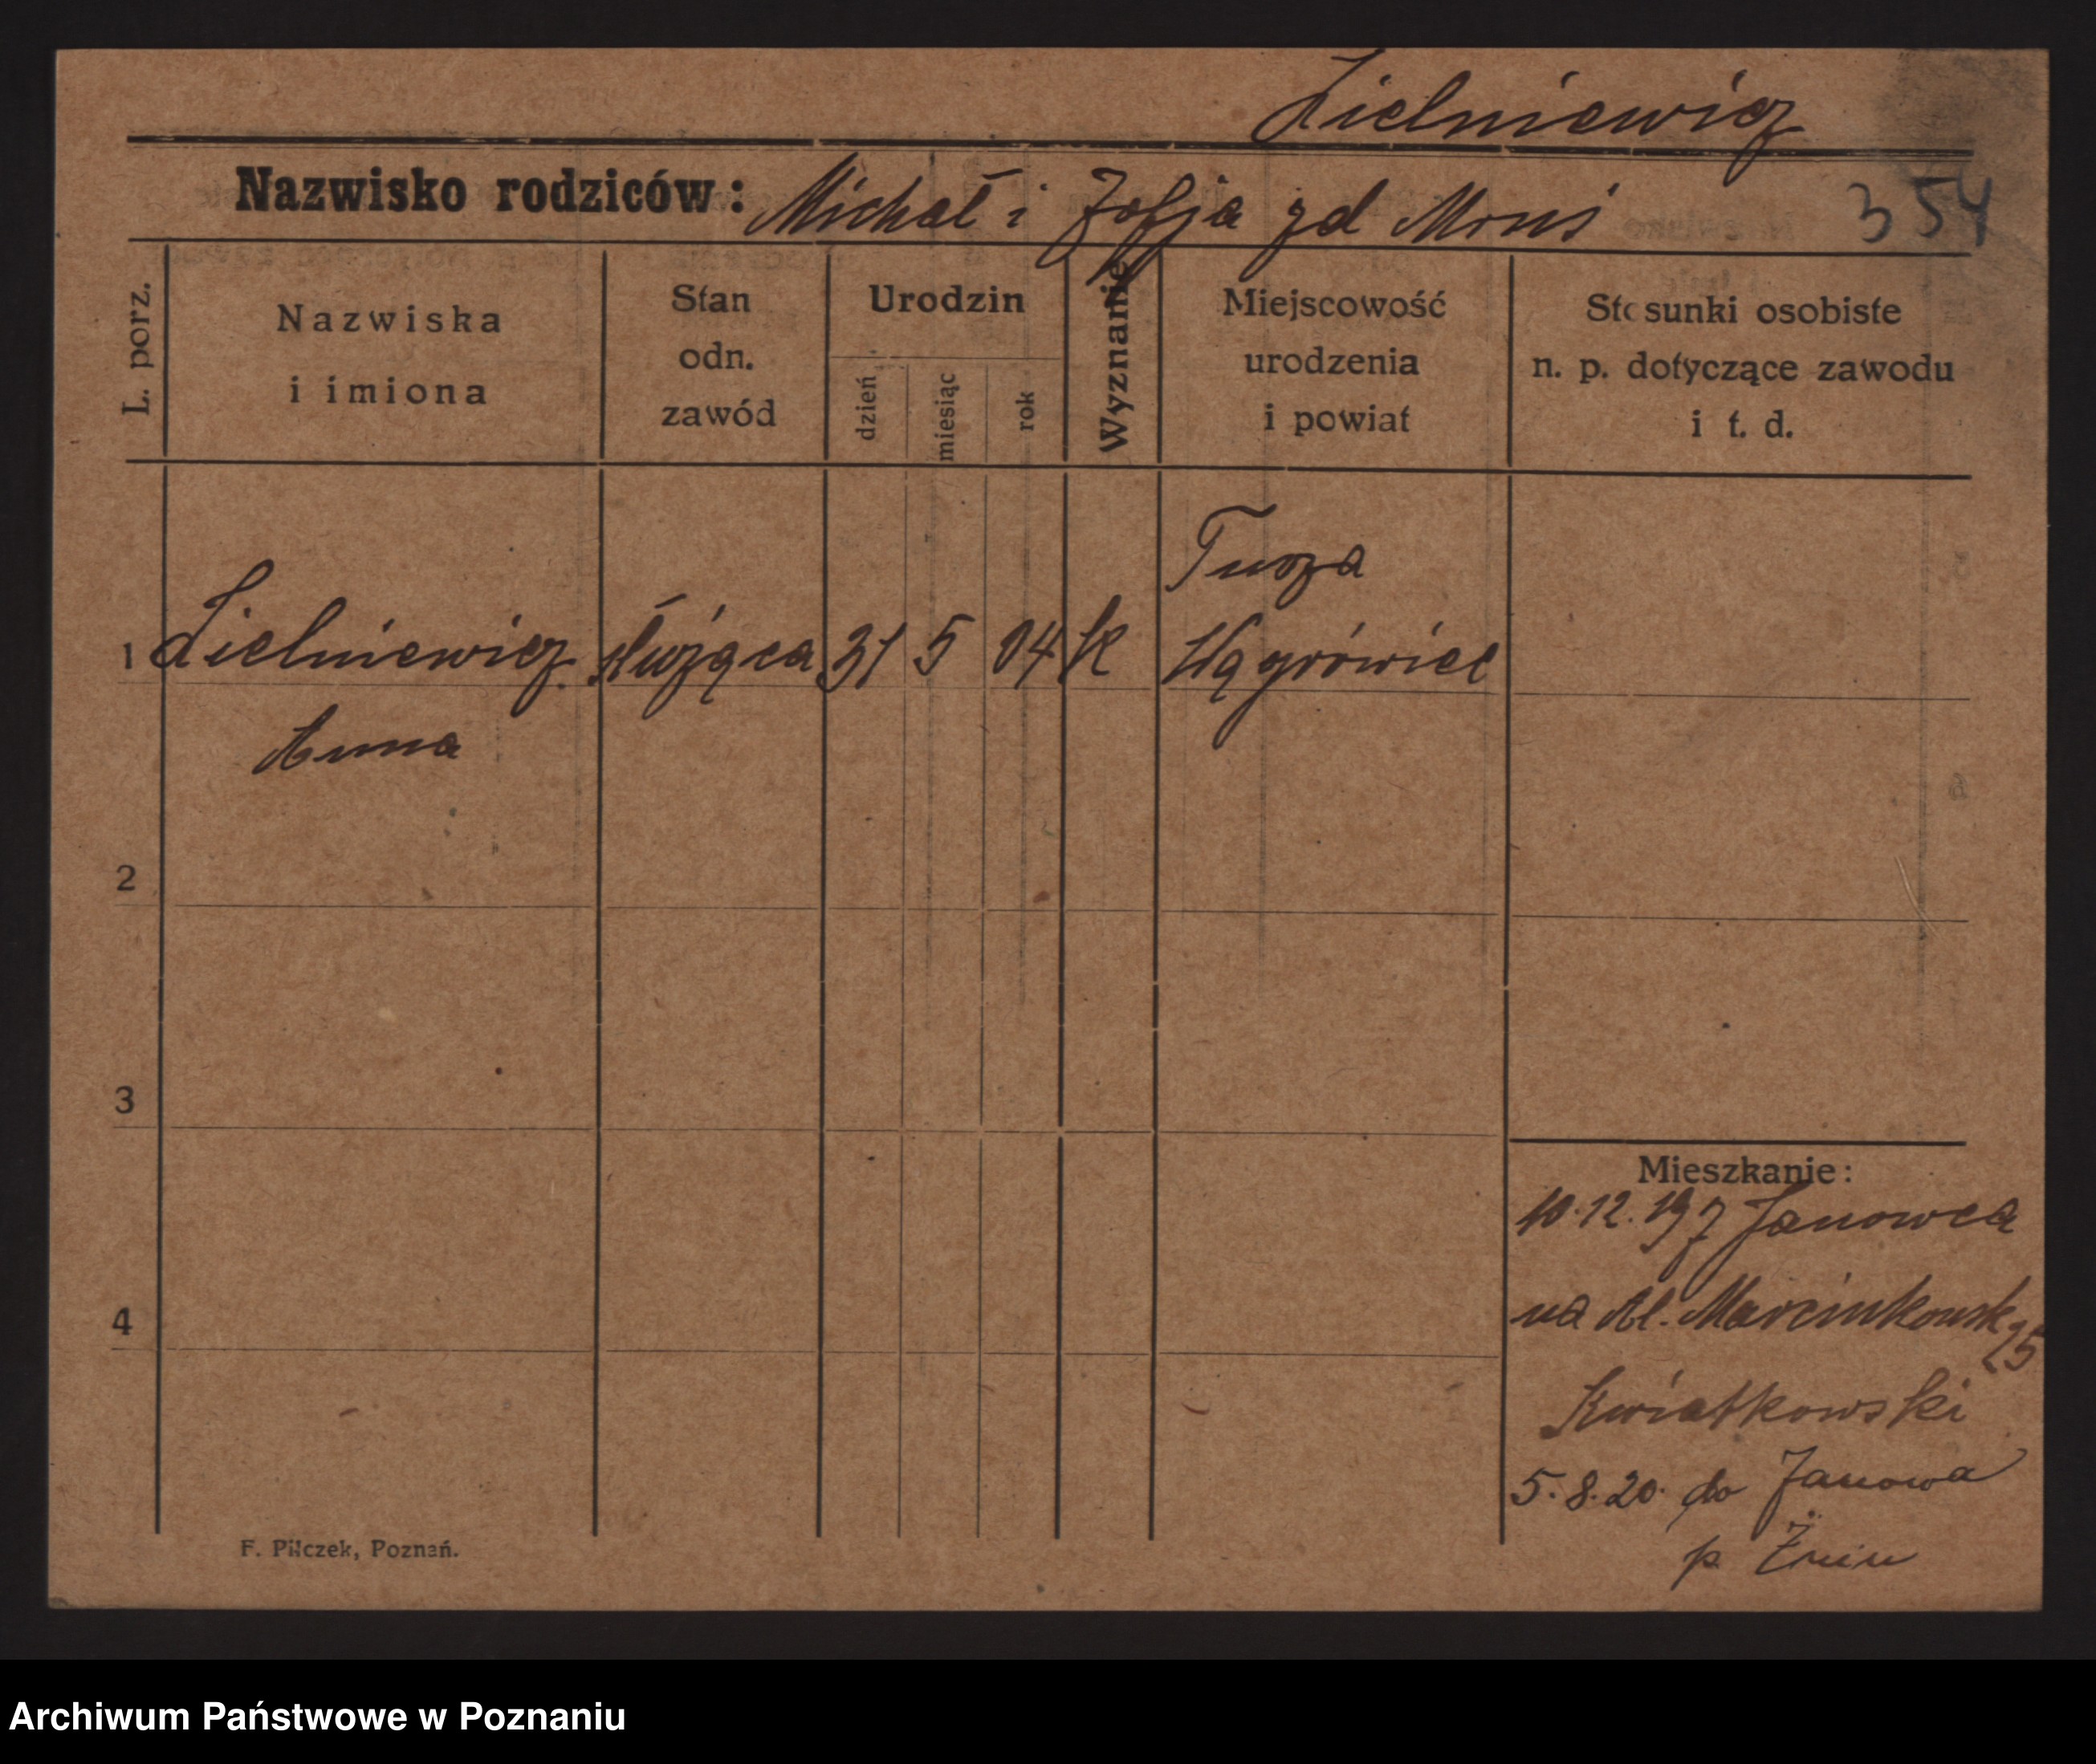 Zielniewicz
Nazwisko rodziców: Michał i Zofja zd Mruś
354
L. porz.
Nazwiska
i imiona
Stan
odn.
zawód
Urodzin
dzień
miesiąc
rok
Wyznanie
Miejscowość
urodzenia
i powiat
Stosunki osobiste
n. p. dotyczące zawodu
i t. d.
Turza
1 Zielniewicz służąca 31 5 04 K Wągrówiec
Anna
2
3
4
Mieszkanie:
10.12.19 z Janowca
na Al. Marcinkowsk 25
Kwiatkowski
5.8.20. do Janowa
p. Żnin
F. Pilczek, Poznań.
Archiwum Państwowe w Poznaniu